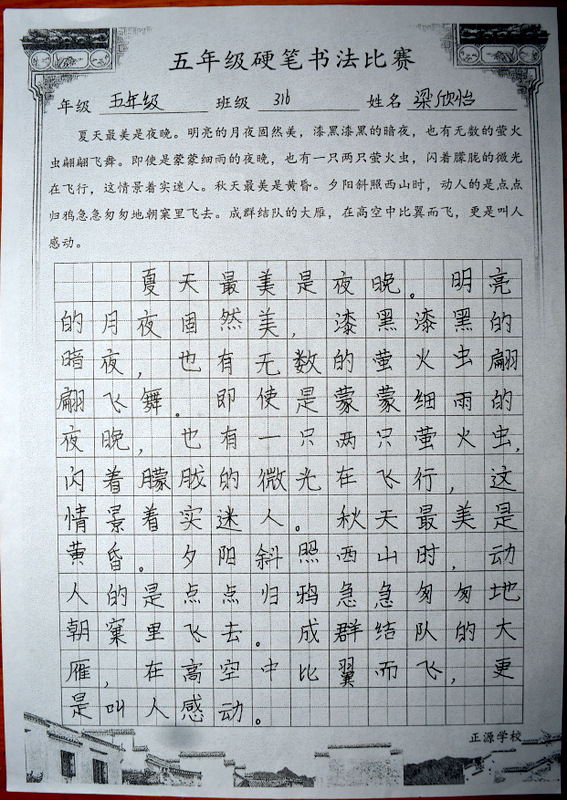 五年级硬笔书法比赛
年级 五年级 班级 316 姓名 梁欣怡
夏天最美是夜晚。明亮的月夜固然美，漆黑漆黑的暗夜，也有无数的萤火
虫翩翩飞舞。即使是蒙蒙细雨的夜晚，也有一只两只萤火虫，闪着朦胧的微光
在飞行，这情景着实迷人。秋天最美是黄昏。夕阳斜照西山时，动人的是点点
归鸦急急匆匆地朝窠里飞去。成群结队的大雁，在高空中比翼而飞，更是叫人
感动。
夏天最美是夜晚。明亮
的月夜固然美，漆黑漆黑的
暗夜，也有无数的萤火虫翩
翩飞舞。即使是蒙蒙细雨的
夜晚，也有一只两只萤火虫，
闪着朦胧的微光在飞行，这
情景着实迷人。秋天最美是
黄昏。夕阳斜照西山时，动
人的是点点归鸦急急匆匆地
朝窠里飞去。成群结队的大
雁，在高空中比翼而飞，更
是叫人感动。
正源学校